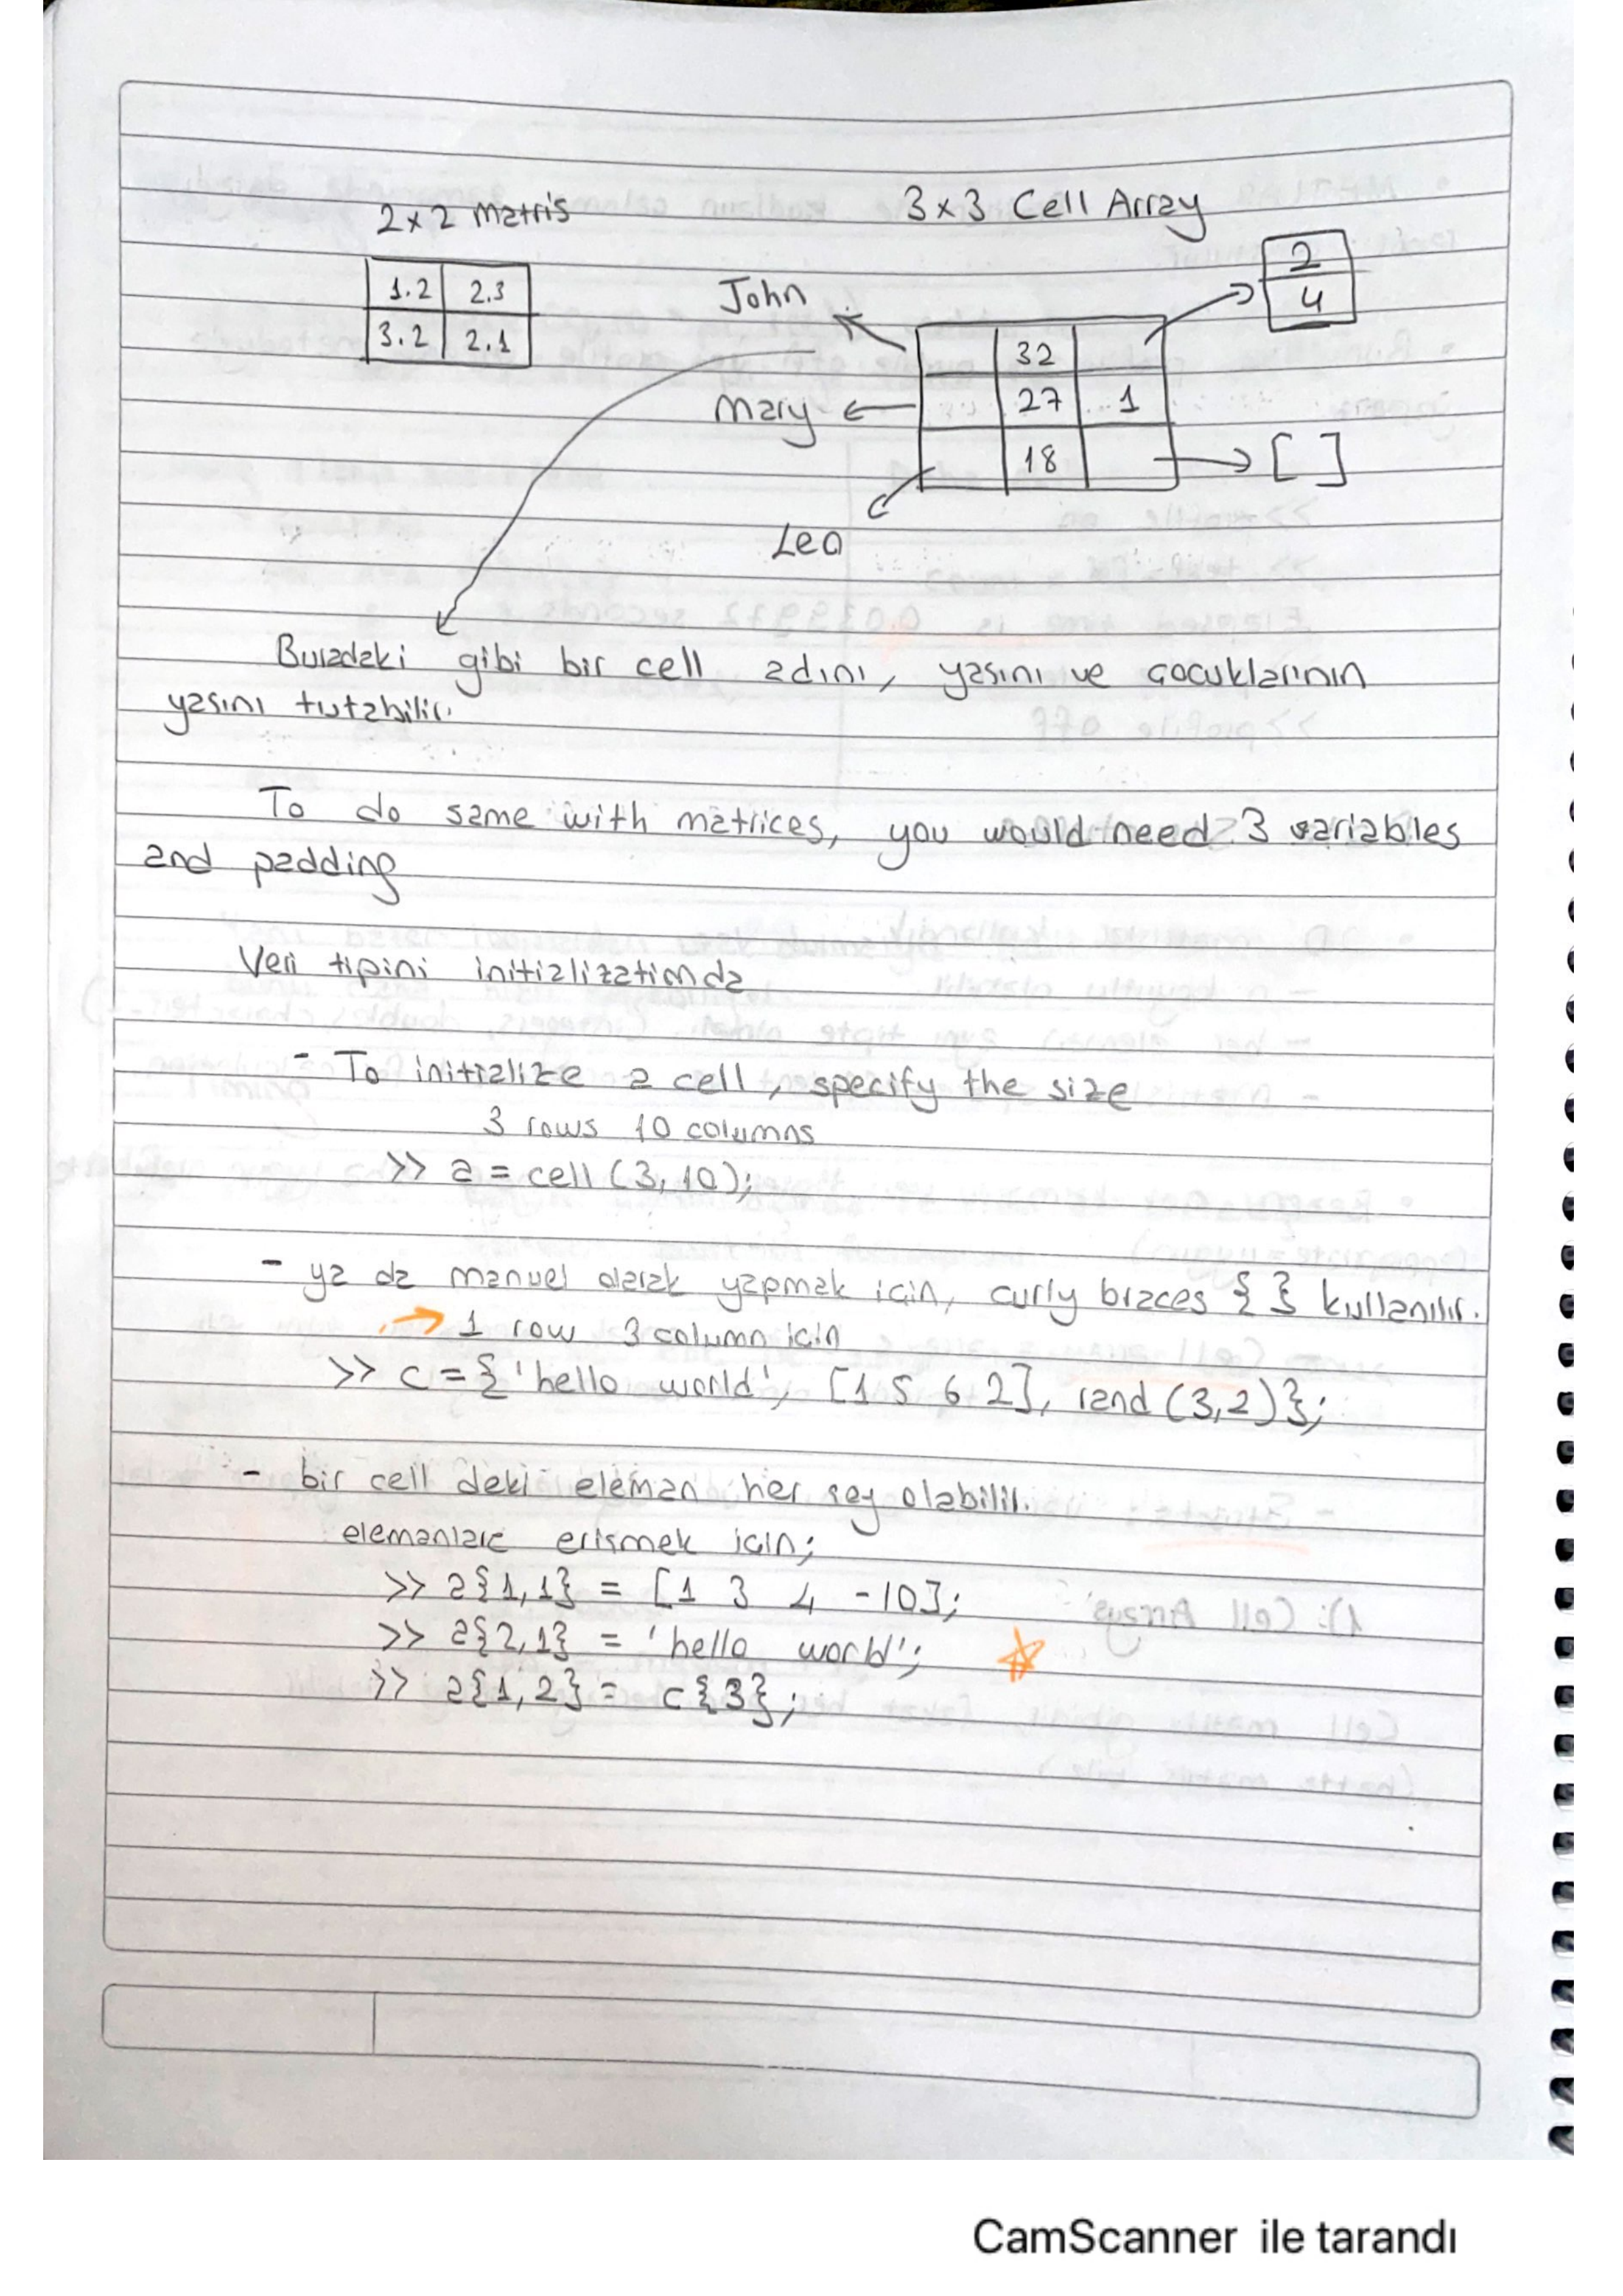 2x2 Matris
3x3 Cell Array
1.2 2.3
3.2 2.1
John
Mary
Leo
32
27 1
18
2
4
[ ]
Buradaki gibi bir cell adını, yasını ve çocuklarının
yasını tutabilir.
To do same with matrices, you would need 3 variables
and padding
Veri tipini initializationda
- To initialize a cell, specify the size
3 rows 10 columns
>> a = cell (3,10);
- ya da manuel olarak yapmak icin, curly braces { } kullanılır.
→ 1 row 3 column icin
>> c = {'hello world', [1 5 6 2], rand (3,2)};
- bir cell deki eleman her sey olabilir.
elemanlara erismek icin;
>> a{1,1} = [1 3 4 -10];
>> a{2,1} = 'hello world';
>> a{1,2} = c{3};
CamScanner ile tarandı